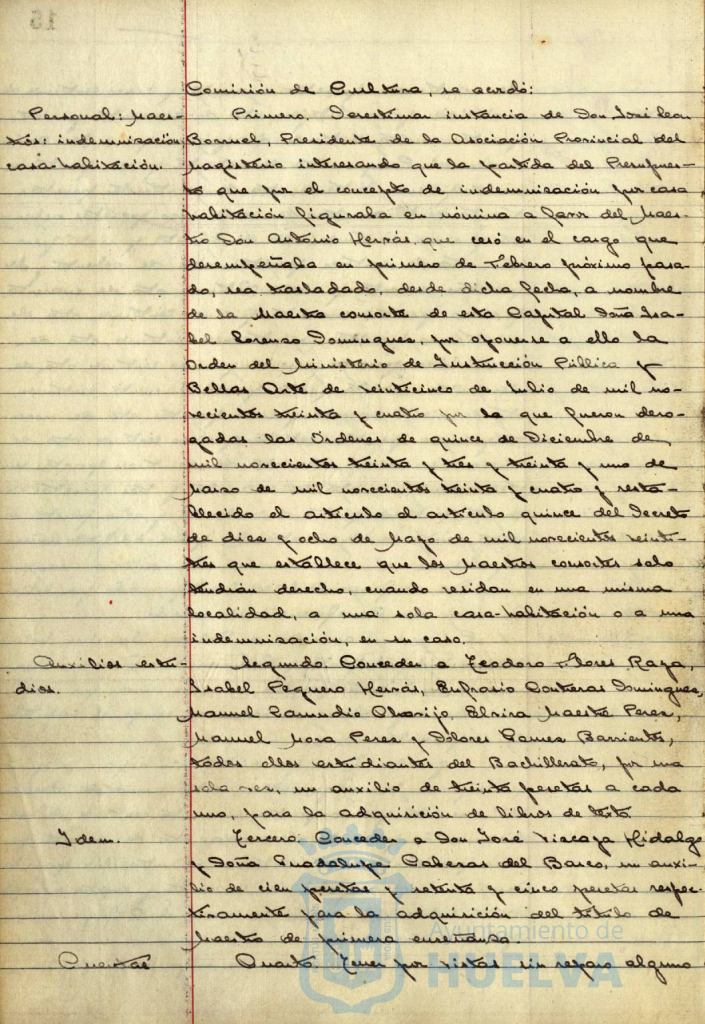 Comisión de Cultura, se acordó:
Personal: Maes-
tros: indemnización
casa-habitación.
Primero. Desestimar instancia de Don José Leon
Borruel, Presidente de la Asociación Provincial del
Magisterio interesando que la partida del Presupues-
to que por el concepto de indemnización por casa
habitación figuraba en nómina a favor del Maes-
tro Don Antonio Hervás, que cesó en el cargo que
desempeñaba en primero de Febrero próximo pasa-
do, sea trasladado, desde dicha fecha, a nombre
de la Maestra consorte de esta Capital Doña Isa-
bel Lorenzo Dominguez, por oponerse a ello la
Orden del Ministerio de Instrucción Pública y
Bellas Arte de veinticinco de Julio de mil no-
vecientos treinta y cuatro por la que fueron dero-
gadas las Ordenes de quince de Diciembre de
mil novecientos treinta y tres y treinta y uno de
Marzo de mil novecientos treinta y cuatro y resta-
blecido el artículo el artículo quince del Decreto
de diez y ocho de Mayo de mil novecientos veinti-
tres que establece que los Maestros consortes solo
tendrán derecho, cuando residan en una misma
localidad, a una sola casa-habitación o a una
indemnización, en su caso.
Auxilios estu-
dios.
Segundo. Conceder a Teodoro Flores Raya,
Isabel Peguero Hervás, Eufrasio Contreras Dominguez,
Manuel Zamudio Elvira Maestre Perez,
Manuel Mora Perez y Dolores Gomez Barrientos,
todos ellos estudiantes del Bachillerato, por una
sola vez, un auxilio de treinta pesetas a cada
uno, para la adquisición de libros de texto.
Idem.
Tercero. Conceder a Don José Vizcaya Hidalgo
y Doña Guadalupe Caberas del Barco, un auxi-
lio de cien pesetas y setenta y cinco pesetas respec-
tivamente para la adquisición del título de
Maestro de primera enseñanza.
Cuentas
Cuarto. Tener por vistas, sin reparo alguno
Ayuntamiento de
HUELVA
15